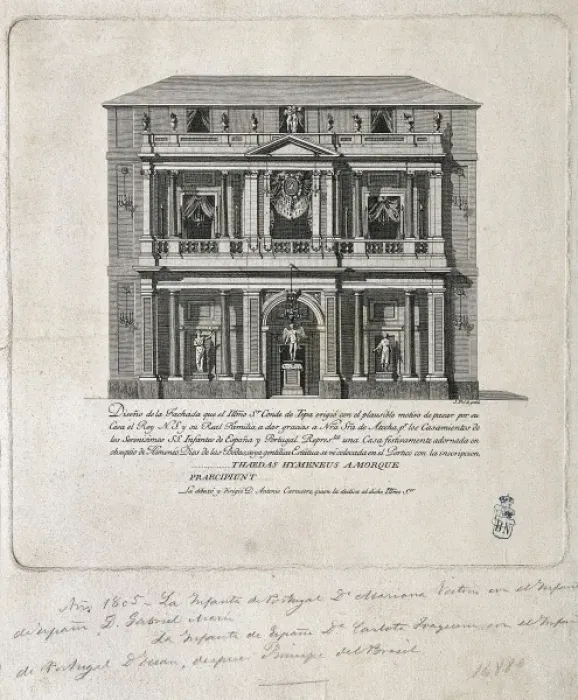 Diseño de la Fachada que el Illmo Sr Conde de Tepa erigió con el plausible motivo de pasar por su
Casa el Rey N.S. y su Real Familia, a dar gracias a Nra Sra de Atocha, pr los Casamientos de
los Serenisimos SS. Infantes de España y Portugal. Represta una Casa festivamente adornada en
obsequio de Himeneo Dios de las Bodas, cuya gentilica Estatua se ve colocada en el Portico con la inscripcion.
THAEDAS HYMENEUS AMORQUE
PRAECIPIUNT
La dibuxó y dirigió D. Antonio Carnicero, quien la dedica al dicho Illmo Sor
BN
Año 1805 - La Infanta de Portugal Da Mariana Victoria con el Infante
de España D. Gabriel
La Infanta de España Da Carlota Joaquina con el Infante
de Portugal D. Juan, despues Principe del Brasil